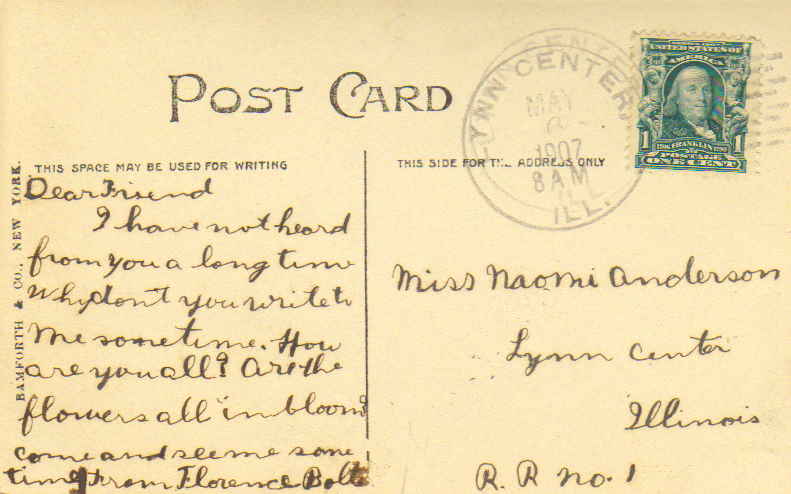 POST CARD
THIS SPACE MAY BE USED FOR WRITING
Dear Friend
I have not heard
from you a long time
Why dont you write to
me sometime. How
are you all? Are the
flowers all in bloom?
come and see me some
time From Florence Bolt
BAMFORTH & CO., NEW YORK.
THIS SIDE FOR THE ADDRESS ONLY
LYNN CENTER,
MAY
6
1907
8 AM
ILL.
UNITED STATES OF
AMERICA
1 FRANKLIN 1
POSTAGE
ONE CENT
Miss Naomi Anderson
Lynn Center
Illinois
R. R no. 1